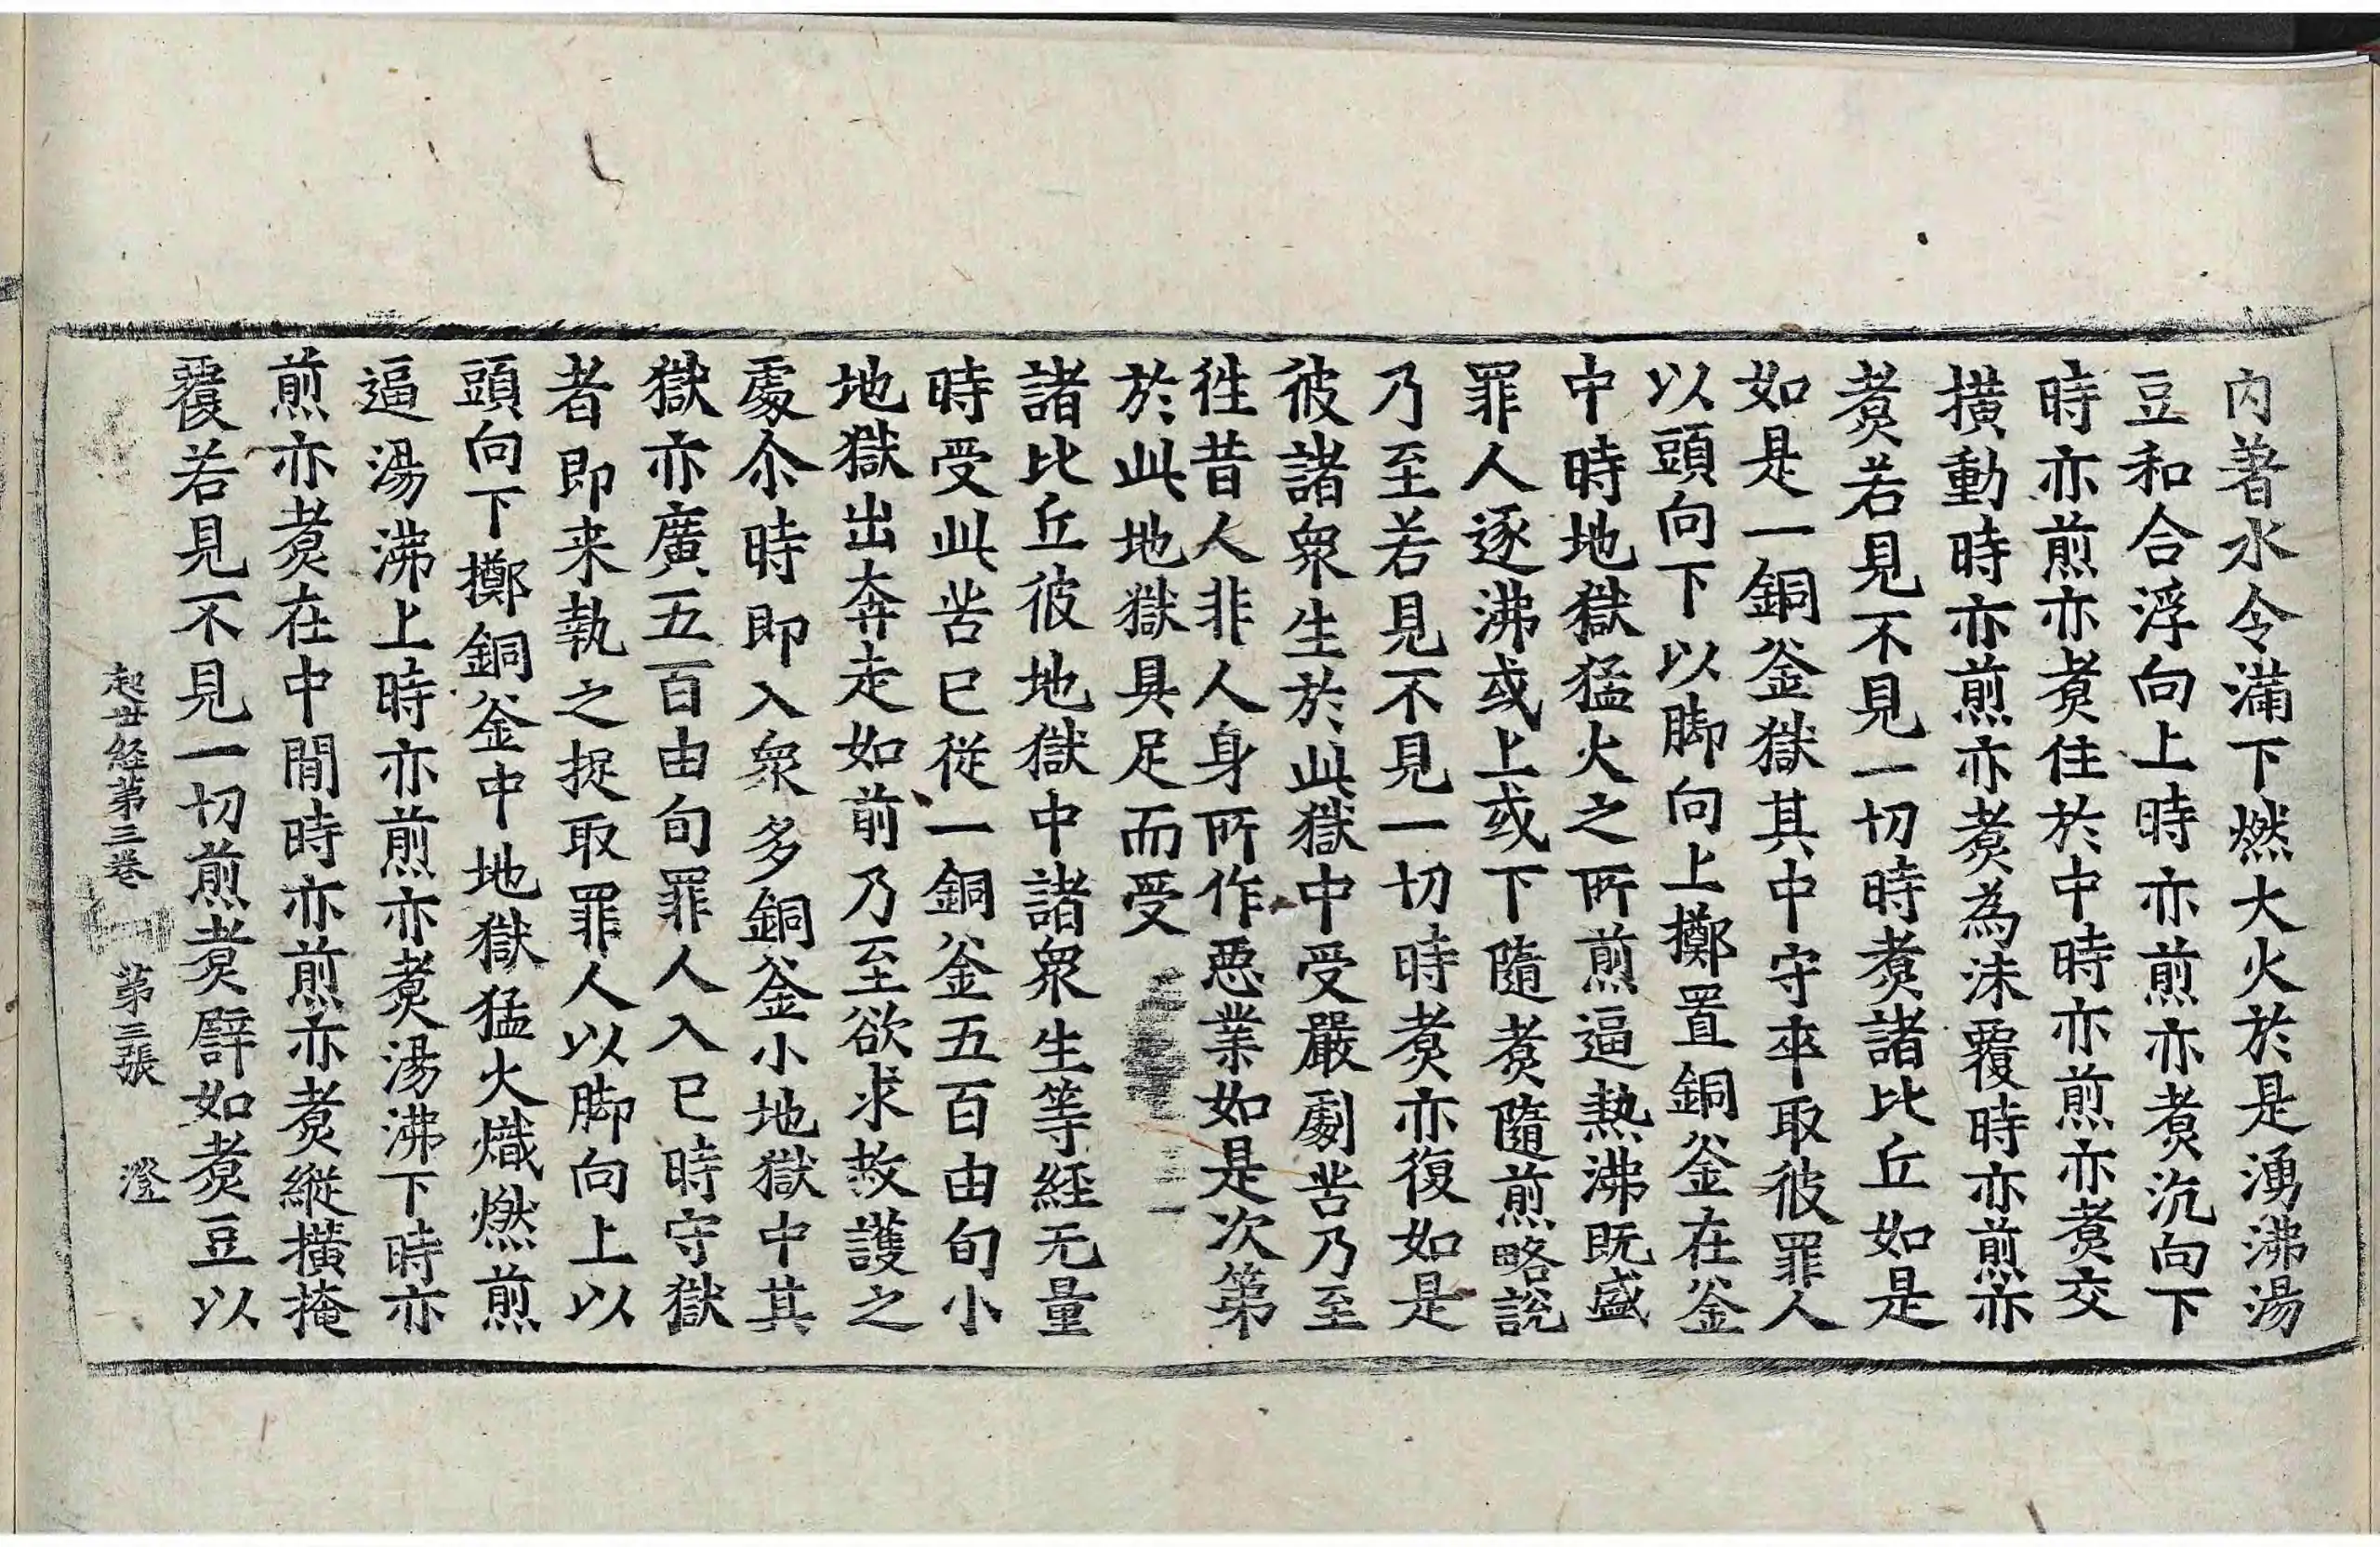 内著水令滿下燃大火於是湧沸湯
豆和合浮向上時亦煎亦煑沉向下
時亦煎亦煑住於中時亦煎亦煑交
撗動時亦煎亦煑為沫覆時亦煎亦
煑若見不見一切時煑諸比丘如是
如是一銅釜獄其中守卒取彼罪人
以頭向下以脚向上擲置銅釜在釜
中時地獄猛火之所煎逼熱沸既盛
罪人逐沸或上或下隨煑隨煎略說
乃至若見不見一切時煑亦復如是
彼諸衆生於此獄中受嚴劇苦乃至
徃昔人非人身所作惡業如是次第
於此地獄具足而受
諸比丘彼地獄中諸衆生等経无量
時受此苦已從一銅釜五百由旬小
地獄出奔走如前乃至欲求救護之
處尒時即入衆多銅釜小地獄中其
獄亦廣五百由旬罪人入已時守獄
者即来執之捉取罪人以脚向上以
頭向下擲銅釜中地獄猛火熾燃煎
逼湯沸上時亦煎亦煑湯沸下時亦
煎亦煑在中間時亦煎亦煑縱撗掩
覆若見不見一切煎煑譬如煑豆以
起世経第三卷 第三張 澄